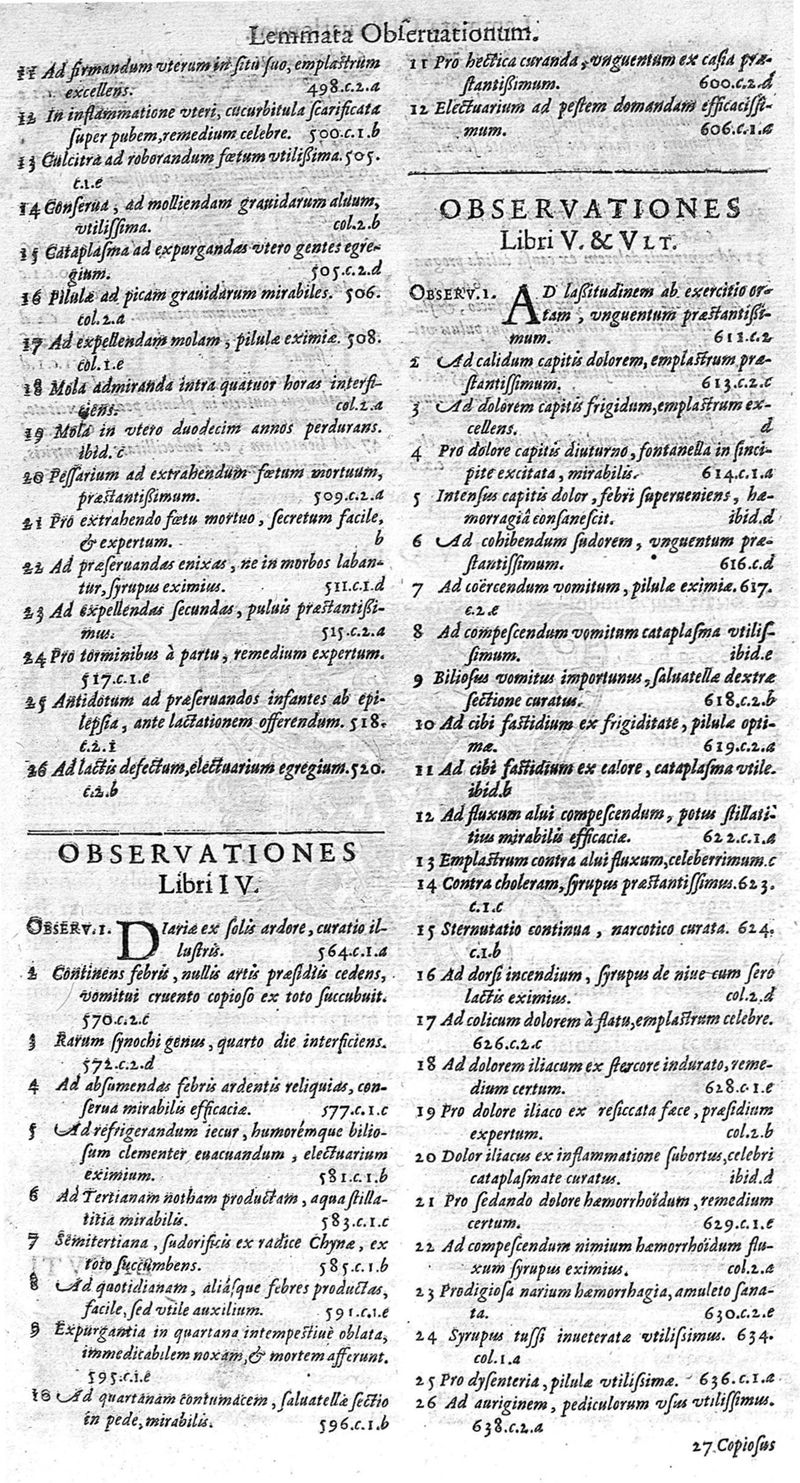 Lemmata Obſeruationum.
11 Ad firmandum vterum in ſitu ſuo, emplaſtrum
excellens. 498.c.2.a
12 In inflammatione vteri, cucurbitula ſcarificata
ſuper pubem, remedium celebre. 500.c.1.b
13 Culcitra ad roborandum fœtum vtilißima. 505.
c.1.e
14 Conſerua, ad molliendam grauidarum aluum,
vtiliſſima. col.2.b
15 Cataplaſma ad expurgandas vtero gentes egre-
gium. 505.c.2.d
16 Pilulæ ad picam grauidarum mirabiles. 506.
col.2.a
17 Ad expellendam molam, pilulæ eximiæ. 508.
col.1.e
18 Mola admiranda intra quatuor horas interfi-
ciens. col.2.a
19 Mola in vtero duodecim annos perdurans.
ibid. c
20 Peſſarium ad extrahendum fœtum mortuum,
præſtantißimum. 509.c.2.a
21 Pro extrahendo fœtu mortuo, ſecretum facile,
& expertum. b
22 Ad præſeruandas enixas, ne in morbos laban-
tur, ſyrupus eximius. 511.c.1.d
23 Ad expellendas ſecundas, puluis præſtantißi-
mus. 515.c.2.a
24 Pro torminibus à partu, remedium expertum.
517.c.1.e
25 Antidotum ad præſeruandos infantes ab epi-
lepſia, ante lactationem offerendum. 518.
c.2.i
26 Ad lactis defectum, electuarium egregium. 520.
c.2.b
OBSERVATIONES
Libri IV.
OBSERV. 1. DIariæ ex ſolis ardore, curatio il-
luſtris. 564.c.1.a
2 Continens febris, nullis artis præſidiis cedens,
vomitui cruento copioſo ex toto ſuccubuit.
570.c.2.c
3 Rarum ſynochi genus, quarto die interficiens.
572.c.2.d
4 Ad abſumendas febris ardentis reliquias, con-
ſerua mirabilis efficaciæ. 577.c.1.c
5 Ad refrigerandum iecur, humorémque bilio-
ſum clementer euacuandum, electuarium
eximium. 581.c.1.b
6 Ad Tertianam notham productam, aqua ſtilla-
titia mirabilis. 583.c.1.c
7 Semitertiana, ſudorificis ex radice Chynæ, ex
toto ſuccumbens. 585.c.1.b
8 Ad quotidianam, aliáſque febres productas,
facile, ſed vtile auxilium. 591.c.1.e
9 Expurgantia in quartana intempeſtiuè oblata,
immedicabilem noxam, & mortem afferunt.
595.c.1.e
10 Ad quartanam contumacem, ſaluatellæ ſectio
in pede, mirabilis. 596.c.1.b
11 Pro hectica curanda, vnguentum ex caſia præ-
ſtantißimum. 600.c.2.d
12 Electuarium ad peſtem domandam efficaciſſi-
mum. 606.c.1.a
OBSERVATIONES
Libri V. & VLT.
OBSERV. 1. AD laßitudinem ab exercitio or-
tam, vnguentum præſtantißi-
mum. 611.c.2
2 Ad calidum capitis dolorem, emplaſtrum præ-
ſtantiſſimum. 613.c.2.c
3 Ad dolorem capitis frigidum, emplaſtrum ex-
cellens. d
4 Pro dolore capitis diuturno, fontanella in ſinci-
pite excitata, mirabilis. 614.c.1.a
5 Intenſus capitis dolor, febri ſuperueniens, hæ-
morragiâ conſaneſcit. ibid.d
6 Ad cohibendum ſudorem, vnguentum præ-
ſtantiſſimum. 616.c.d
7 Ad coërcendum vomitum, pilulæ eximiæ. 617.
c.2.e
8 Ad compeſcendum vomitum cataplaſma vtiliſ-
ſimum. ibid.e
9 Bilioſus vomitus importunus, ſaluatellæ dextræ
ſectione curatus. 618.c.2.b
10 Ad cibi faſtidium ex frigiditate, pilulæ opti-
mæ. 619.c.2.a
11 Ad cibi faſtidium ex calore, cataplaſma vtile.
ibid.b
12 Ad fluxum alui compeſcendum, potus ſtillati-
tius mirabilis efficaciæ. 622.c.1.a
13 Emplaſtrum contra alui fluxum, celeberrimum. c
14 Contra choleram, ſyrupus præſtantiſſimus. 623.
c.1.c
15 Sternutatio continua, narcotico curata. 624.
c.1.b
16 Ad dorſi incendium, ſyrupus de niue cum ſero
lactis eximius. col.2.d
17 Ad colicum dolorem à flatu, emplaſtrum celebre.
626.c.2.c
18 Ad dolorem iliacum ex ſtercore indurato, reme-
dium certum. 628.c.1.e
19 Pro dolore iliaco ex reſiccata fæce, præſidium
expertum. col.2.b
20 Dolor iliacus ex inflammatione ſubortus, celebri
cataplaſmate curatus. ibid.d
21 Pro ſedando dolore hæmorrhoïdum, remedium
certum. 629.c.1.e
22 Ad compeſcendum nimium hæmorrhoïdum flu-
xum ſyrupus eximius. col.2.a
23 Prodigioſa narium hæmorrhagia, amuleto ſana-
ta. 630.c.2.e
24 Syrupus tuſſi inueteratæ vtiliſſimus. 634.
col.1.a
25 Pro dyſenteria, pilulæ vtiliſſimæ. 636.c.1.a
26 Ad auriginem, pediculorum vſus vtiliſſimus.
638.c.2.a
27 Copioſus